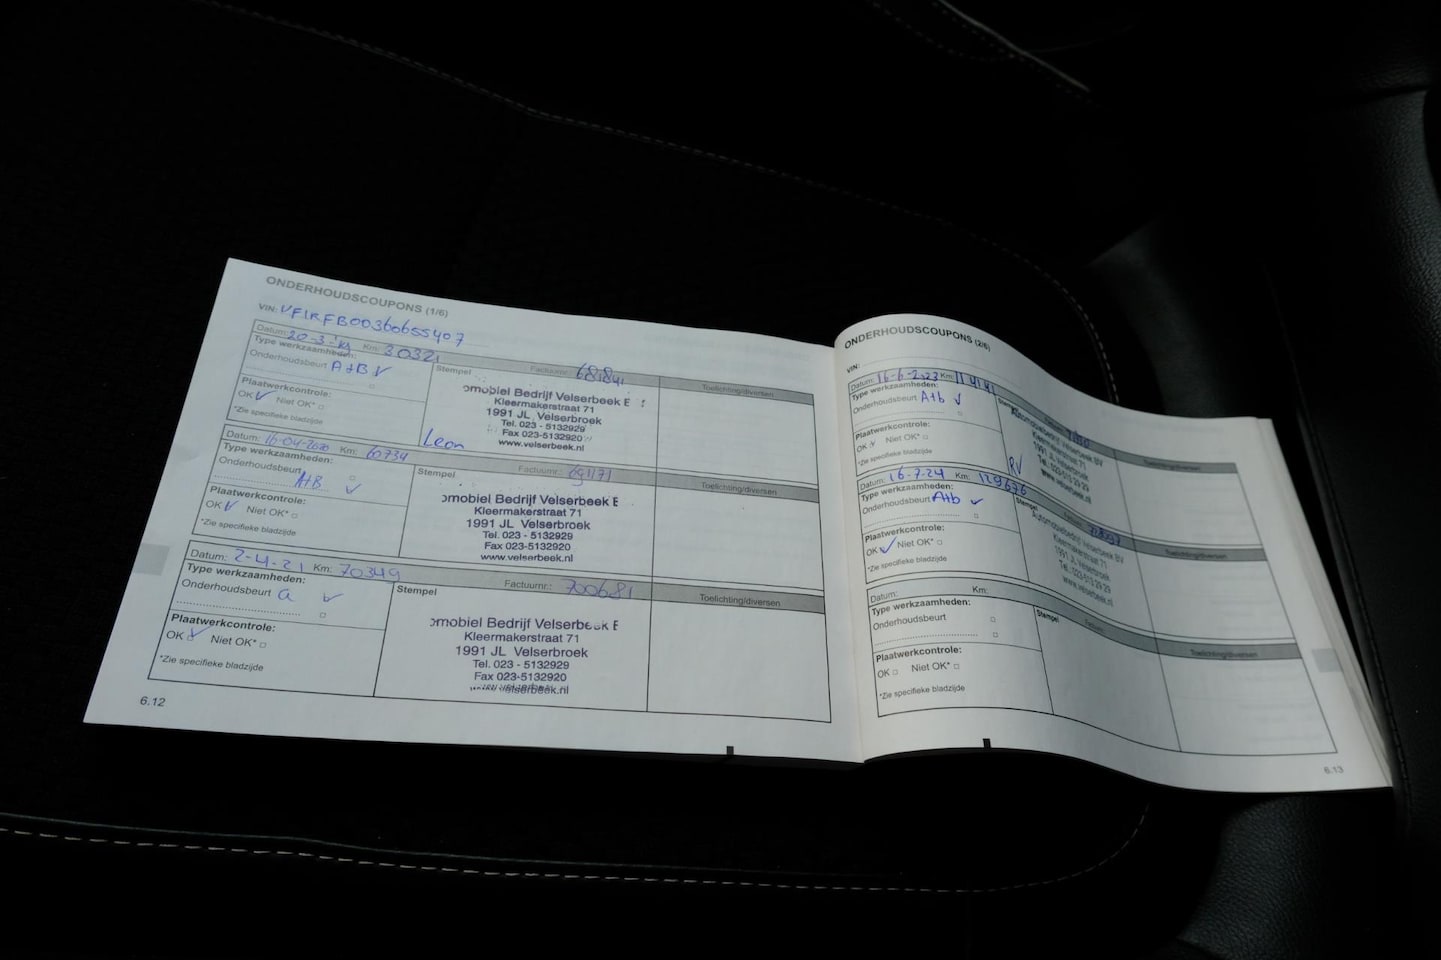 ONDERHOUDSCOUPONS (1/6)
VIN: VF1RFB00360655407
Datum: 20-3- Km: 30321 Factuurnr.:
Type werkzaamheden: Stempel Toelichting/diversen
Onderhoudsbeurt A+B ✓
Plaatwerkcontrole:
OK ✓ Niet OK* □
*Zie specifieke bladzijde
omobiel Bedrijf Velserbeek B
Kleermakerstraat 71
1991 JL Velserbroek
Tel. 023 - 5132929
Fax 023-5132920
www.velserbeek.nl
Leon
Datum: 16-04-2020 Km: 60734 Factuurnr.: 691171
Type werkzaamheden: Stempel Toelichting/diversen
Onderhoudsbeurt A+B ✓
Plaatwerkcontrole:
OK ✓ Niet OK* □
*Zie specifieke bladzijde
omobiel Bedrijf Velserbeek B
Kleermakerstraat 71
1991 JL Velserbroek
Tel. 023 - 5132929
Fax 023-5132920
www.velserbeek.nl
Datum: 2-4-21 Km: 70349 Factuurnr.: 700681
Type werkzaamheden: Stempel Toelichting/diversen
Onderhoudsbeurt a ✓
Plaatwerkcontrole:
OK ✓ Niet OK* □
*Zie specifieke bladzijde
omobiel Bedrijf Velserbeek B
Kleermakerstraat 71
1991 JL Velserbroek
Tel. 023 - 5132929
Fax 023-5132920
velserbeek.nl
6.12
ONDERHOUDSCOUPONS (2/6)
VIN:
Datum: 16-6-2023 Km:
Type werkzaamheden: Stempel Toelichting/diversen
Onderhoudsbeurt A+b ✓
Plaatwerkcontrole:
OK ✓ Niet OK* □
*Zie specifieke bladzijde
Automobielbedrijf Velserbeek BV
Kleermakerstraat 71
1991 JL Velserbroek
Tel. 023-513 29 29
www.velserbeek.nl
RV
Datum: 16-7-24 Km: 129676
Type werkzaamheden: Stempel Toelichting/diversen
Onderhoudsbeurt A+b ✓
Plaatwerkcontrole:
OK ✓ Niet OK* □
*Zie specifieke bladzijde
Automobielbedrijf Velserbeek BV
Kleermakerstraat 71
1991 JL Velserbroek
Tel. 023-513 29 29
www.velserbeek.nl
Datum: Km: Factuurnr.:
Type werkzaamheden: Stempel Toelichting/diversen
Onderhoudsbeurt □
Plaatwerkcontrole:
OK □ Niet OK* □
*Zie specifieke bladzijde
6.13